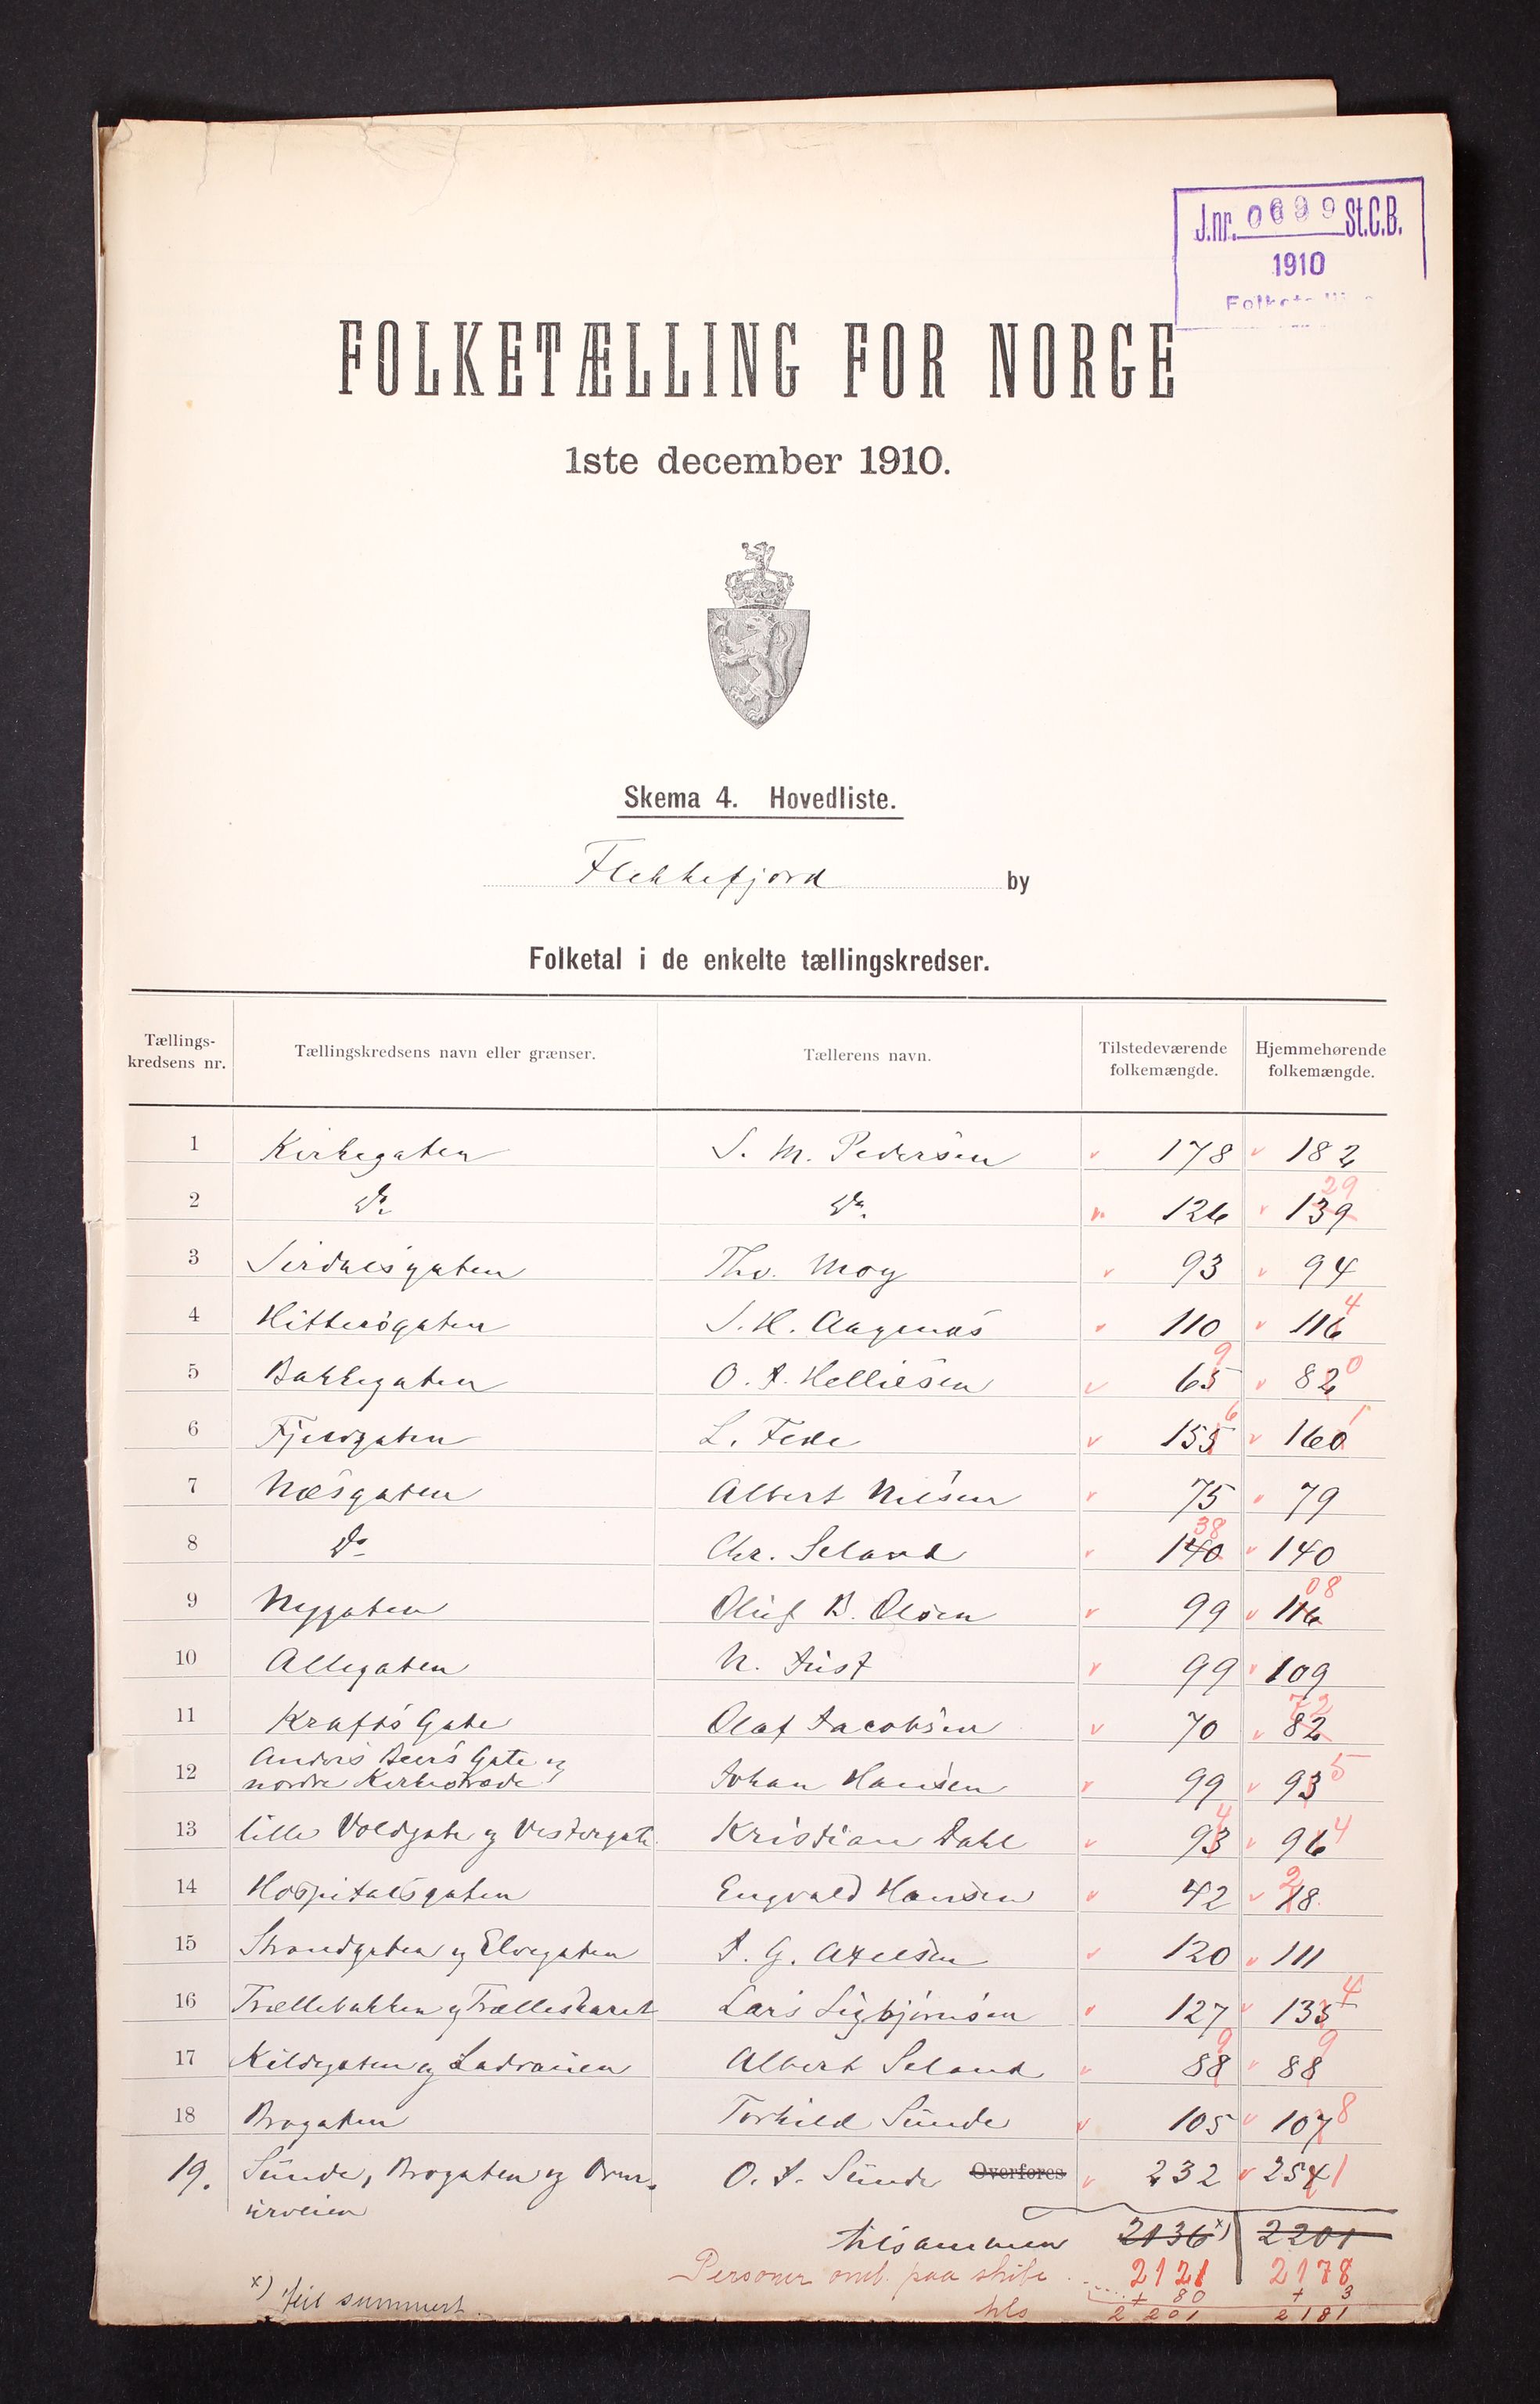 J.nr. 0699 St.C.B.
1910
FOLKETÆLLING FOR NORGE
1ste december 1910.
Skema 4. Hovedliste.
Flekkefjord by
Folketal i de enkelte tællingskredser.
Tællings-kredsens nr. Tællingskredsens navn eller grænser. Tællerens navn. Tilstedeværende folkemængde. Hjemmehørende folkemængde.
1 Kirkegaten S. M. Pedersen 178 182
2 Do Do. 126 139 29
3 Sirdalsgaten Thv. Moy 93 94
4 Hitterögaten S. H. Aagenæs 110 116 4
5 Bakkegaten O. J. Helliesen 65 9 82 0
6 Fjeldgaten L. Fede 155 6 160 1
7 Næsgaten Albert Nilsen 75 79
8 Do Chr. Seland 140 38 140
9 Nygaten Oluf B. Olsen 99 116 08
10 Allegaten N. Just 99 109
11 Krafts Gate Olaf Jacobsen 70 82 72
12 Anders Beers Gate og nordre Kirkestræde Johan Hansen 99 93 5
13 lille Voldgate og Vestergate Kristian Dahl 93 4 96 4
14 Hospitalsgaten Engvald Hansen 42 18 2
15 Strandgaten og Elvegaten J. G. Axelsen 120 111
16 Trællebakken og Trælleskaret Lars Sigbjörnsen 127 135 4
17 Kildegaten og Ladveien Albert Seland 88 9 88 9
18 Brogaten Torkild Sunde 105 107 8
19. Sunde, Brogaten og O. J. Sunde Overføres 232 254 1
urveien
tilsammen 2136 x) 2201
Personer omb. paa skibe 2121 2178
+ 80 + 3
x) feil summert. tils 2201 2181